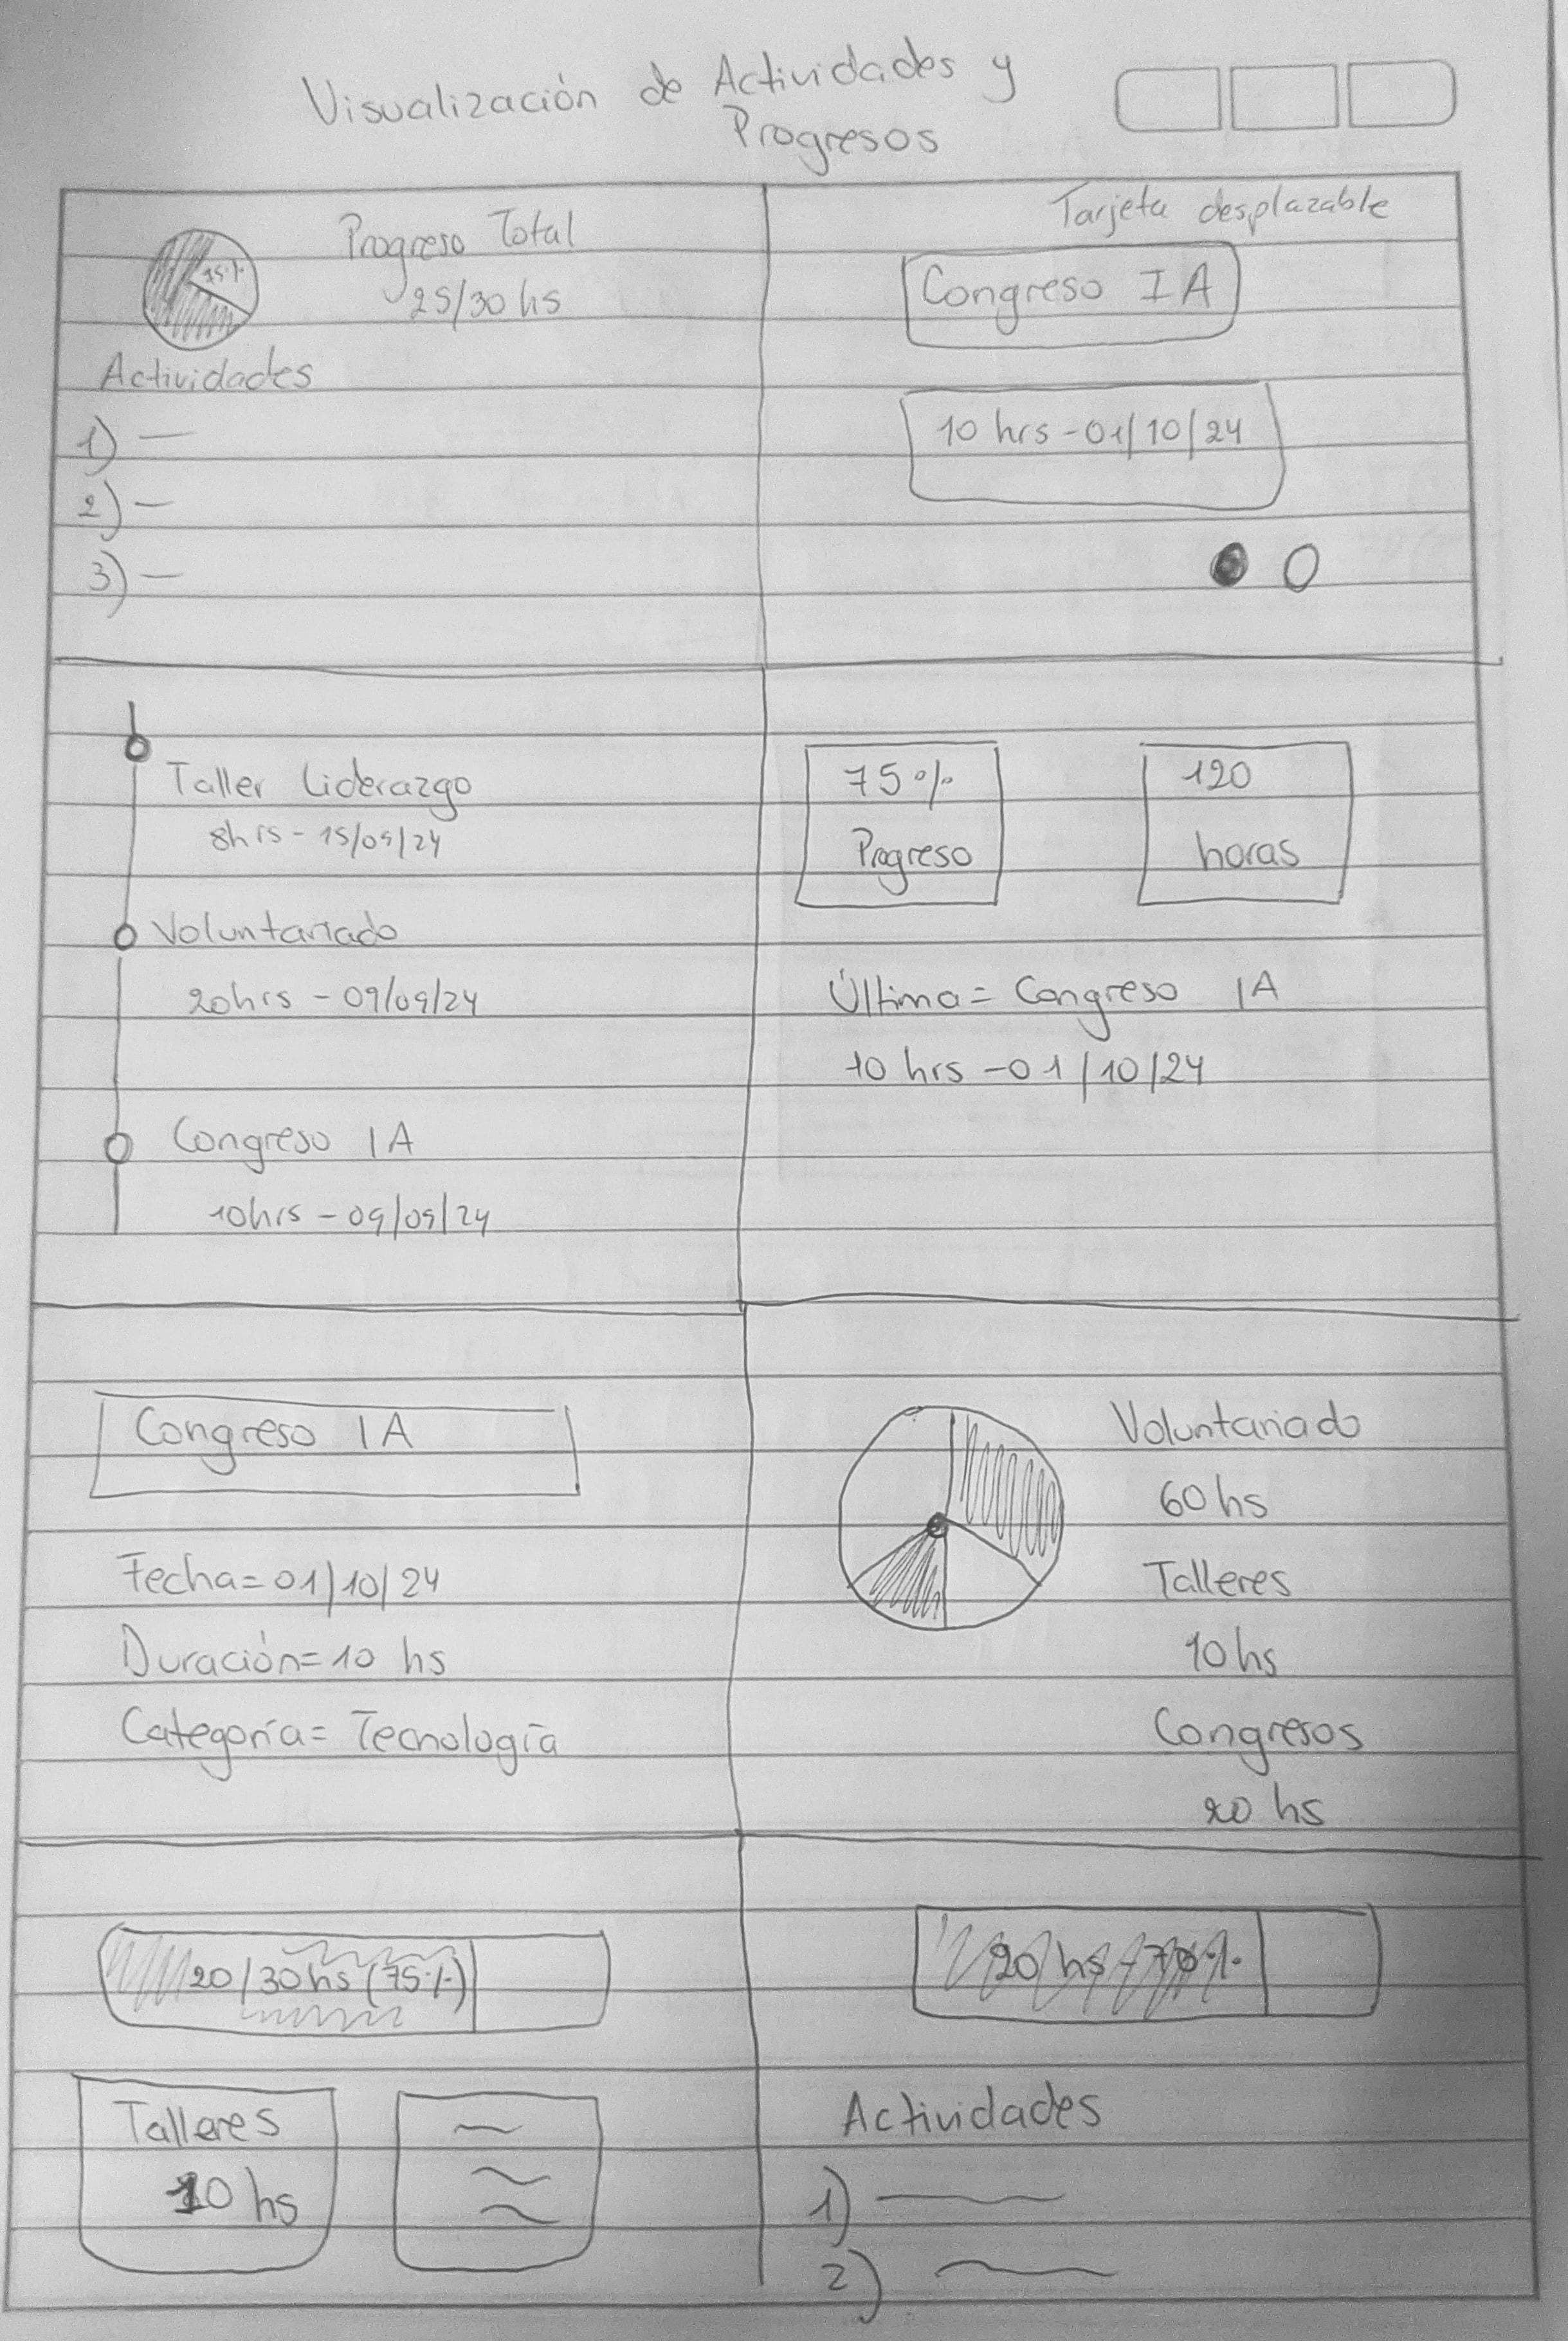 Visualización de Actividades y
Progresos
Progreso Total
75%
25/30 hs
Actividades
1)
2)
3)
Tarjeta desplazable
Congreso IA
10 hrs - 01/10/24
Taller Liderazgo
8hrs - 15/09/24
Voluntariado
20hrs - 09/09/24
Congreso IA
10hrs - 09/09/24
75%
Progreso
120
horas
Última = Congreso IA
10 hrs - 01/10/24
Congreso IA
Fecha = 01/10/24
Duración = 10 hs
Categoría = Tecnología
Voluntariado
60 hs
Talleres
10 hs
Congresos
20 hs
20/30hs (75%)
Talleres
10 hs
20 hs - 70%
Actividades
1)
2)